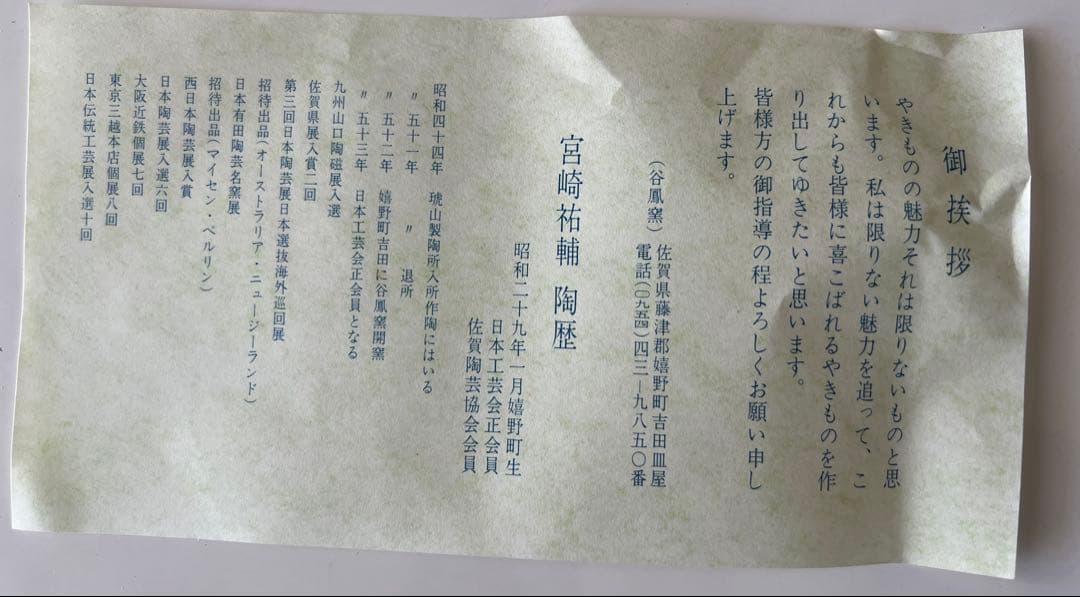 御挨拶
やきものの魅力それは限りないものと思
います。私は限りない魅力を追って、こ
れからも皆様に喜こばれるやきものを作
り出してゆきたいと思います。
皆様方の御指導の程よろしくお願い申し
上げます。
(谷鳳窯) 佐賀県藤津郡嬉野町吉田皿屋
電話(〇九五四)四三―九八五〇番
宮崎祐輔 陶歴
昭和二十九年一月嬉野町生
日本工芸会正会員
佐賀陶芸協会会員
昭和四十四年 琥山製陶所入所作陶にはいる
〃 五十一年 〃 退所
〃 五十二年 嬉野町吉田に谷鳳窯開窯
〃 五十三年 日本工芸会正会員となる
九州山口陶磁展入選
佐賀県展入賞二回
第三回日本陶芸展日本選抜海外巡回展
招待出品(オーストラリア・ニュージーランド)
日本有田陶芸名窯展
招待出品(マイセン・ベルリン)
西日本陶芸展入賞
日本陶芸展入選六回
大阪近鉄個展七回
東京三越本店個展八回
日本伝統工芸展入選十回